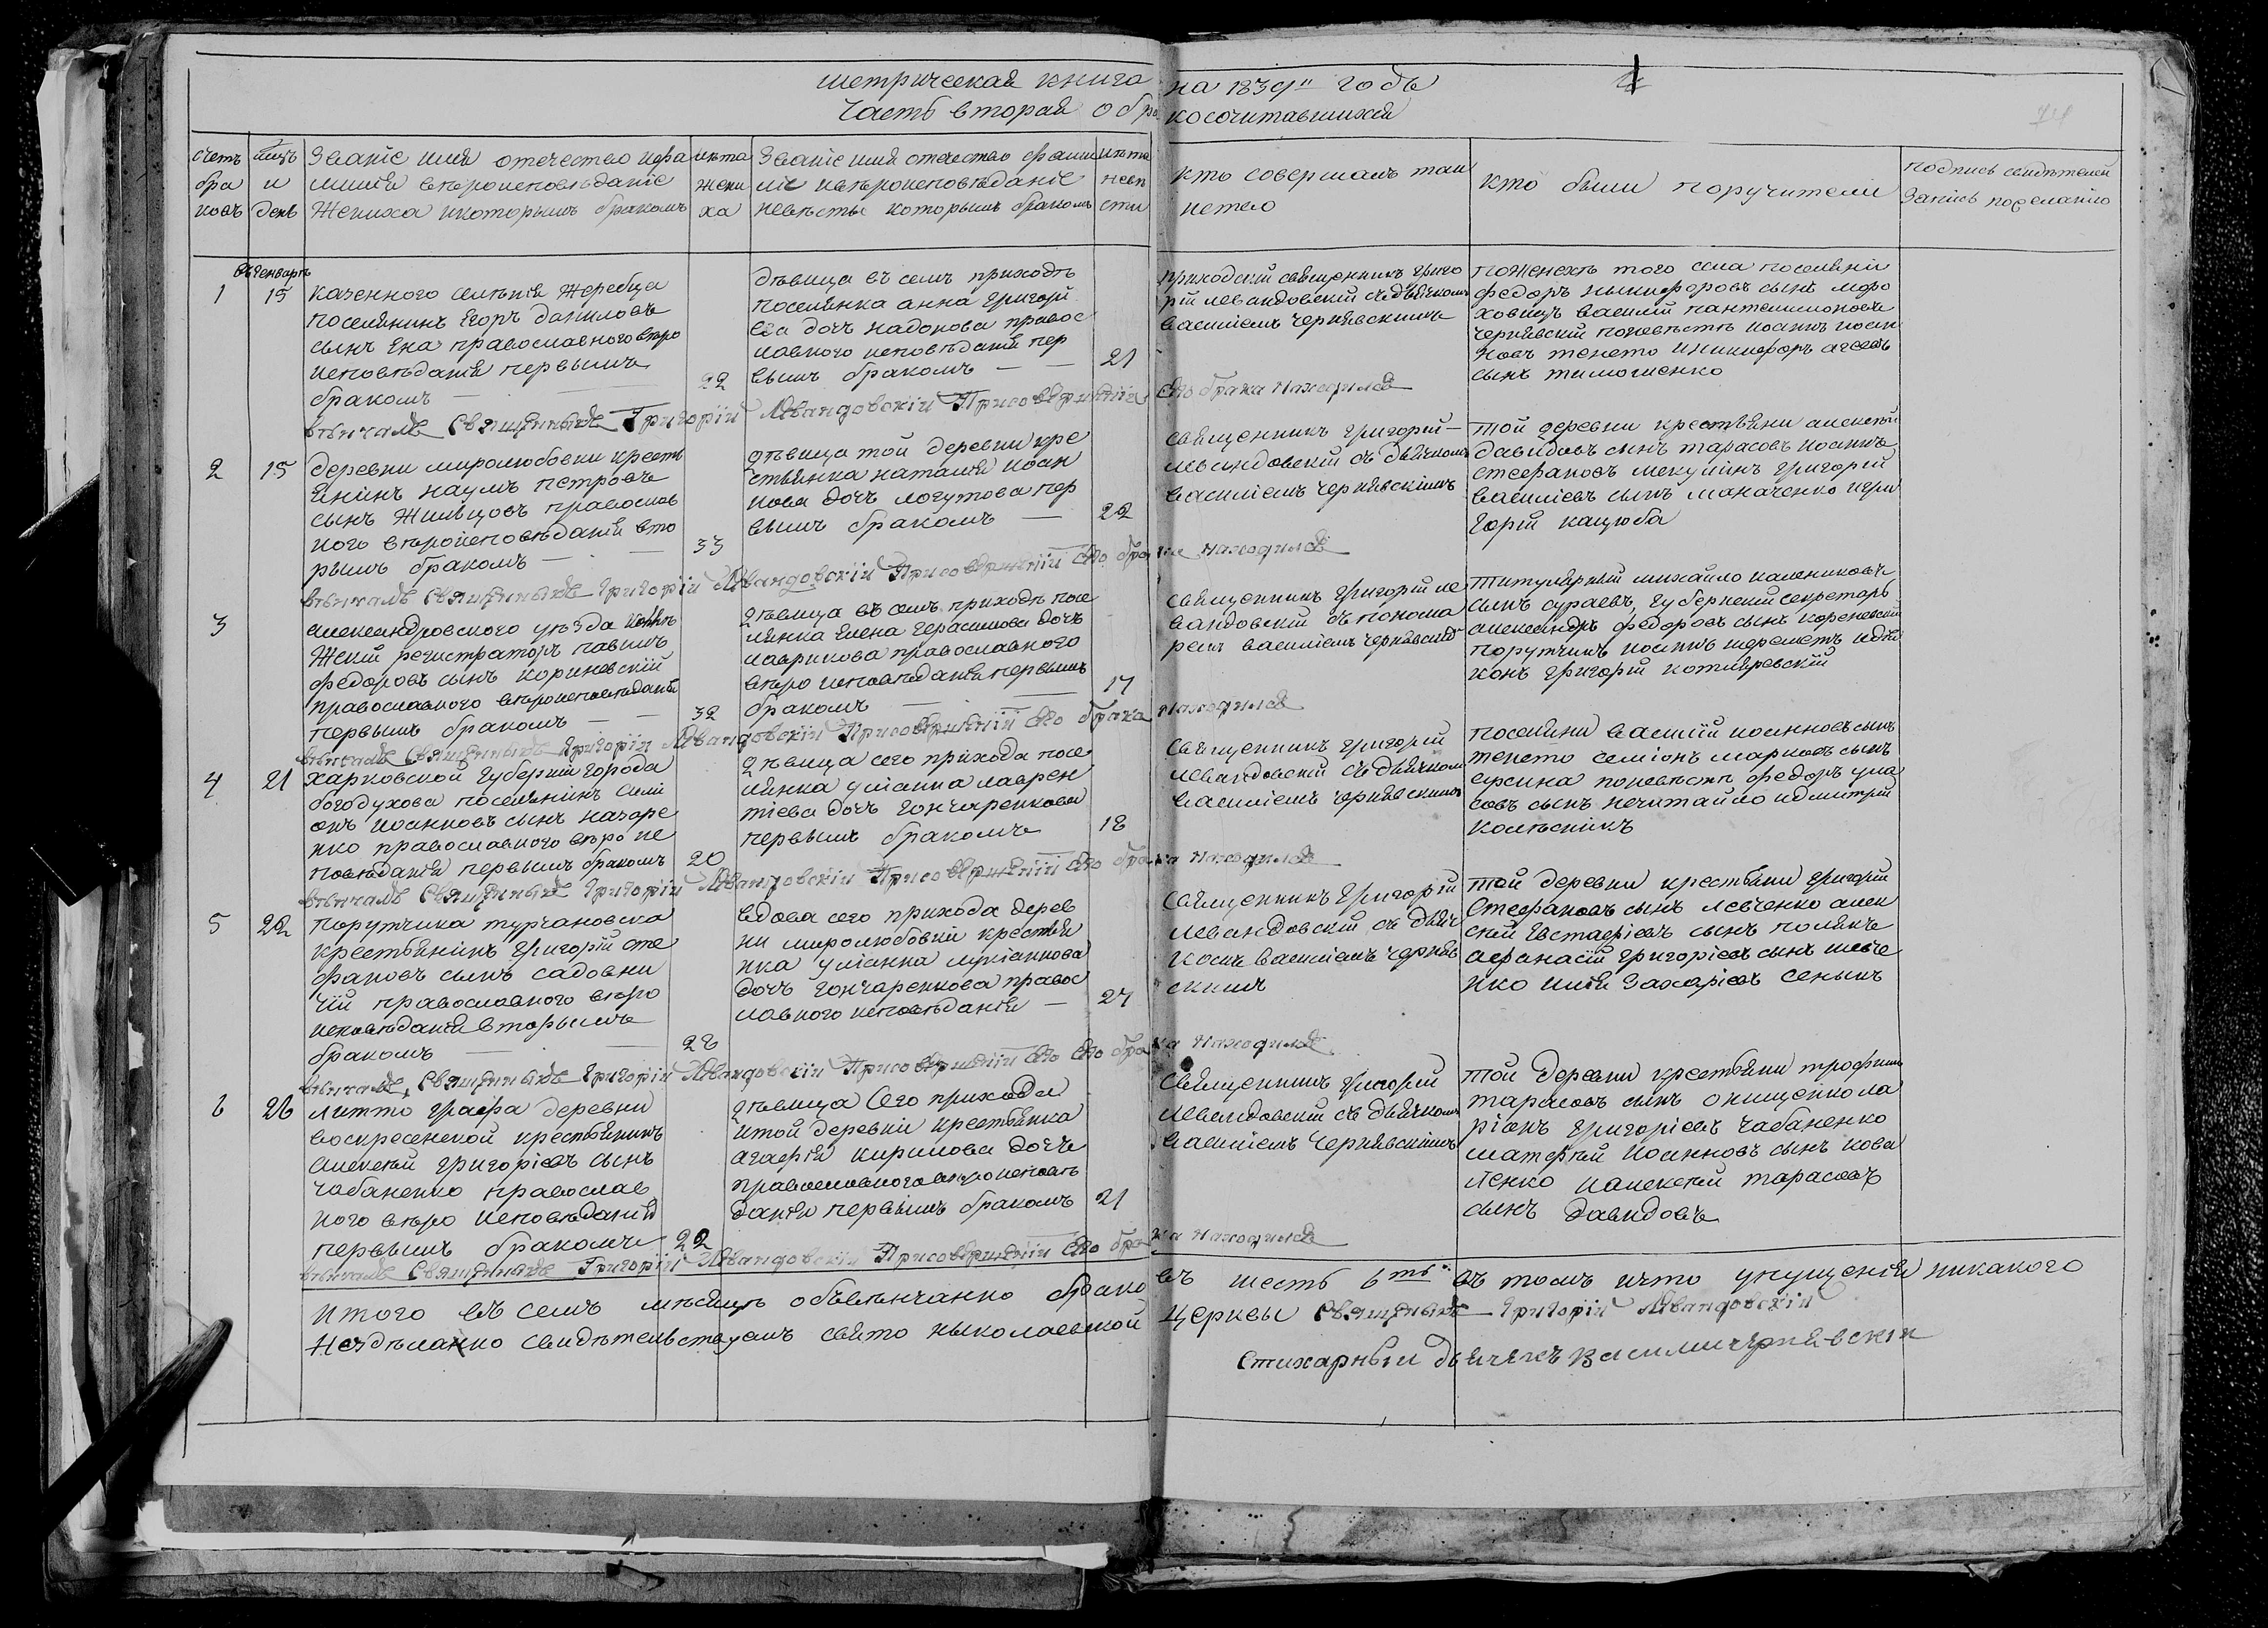 метрическая книга на 1839ıı годъ
Часть вторая о бракосочитавшихся
счетъ браковъ
мцъ и день
Званіе имя отечество и фамилия вѣроисповѣданіе Жениха и которымъ бракомъ
лѣта жениха
Званіе имя отечество фамиліе и вѣроисповѣданіе невѣсты которымъ бракомъ
лѣта невѣсты
кто совершалъ таинство
кто были поручители
подпись свидѣтелей запись по желанію
въ генварѣ
1
15
Казенного селенія Жеребца
поселянинъ Егоръ даниловъ
сынъ Ена православного вѣро
исповѣданія первымъ
бракомъ
22
дѣвица въ семъ приходѣ
поселянка анна григорі
ева дочь надокова правос
лавного исповѣданія пер
вымъ бракомъ
21
приходскій священникъ григо
рій левандовскій съ дьячкомъ
василіемъ чернявскимъ
поженехѣ того села поселяни
федоръ никифоровъ сынъ моро
ховецъ василій пантелимоновъ
чернявскій поневѣстѣ иоаннъ иоан
новъ тенето и никифоръ агеевъ
сынъ тимошенко
вѣнчалъ Священникъ Григорій Левандовскій При совершеніи сего брака находился
2
15
деревни миролюбовки кресть
янинъ наумъ петровъ
сынъ Жильцовъ православ
ного вѣроисповѣданія вто
рымъ бракомъ
33
дѣвица той деревни кре
стьянка наталія иоан
нова дочь логутова пер
вымъ бракомъ
22
священникъ григорій
левандовскій съ дьячкомъ
василіемъ чернявскимъ
той деревни крестьяни алексѣй
давидовъ сынъ тарасовъ иоаннъ
стефановъ мекушинъ григорій
василіевъ сынъ маначенко и гри
горій кацюба
вѣнчалъ Священникъ Григорій Левандовскій При совершеніи сего брака находился
3
александровского уѣзда
жскій регистраторъ павелъ
федоровъ сынъ кориневскій
православного вѣроисповѣданія
первымъ бракомъ
32
дѣвица въ семъ приходѣ посе
лянка елена герасимова дочь
лаврикова православного
вѣро исповѣданія первымъ
бракомъ
17
священникъ григорій ле
вандовскій съ понома
ремъ василіемъ чернявскимъ
титулярный михайло калениковъ
сынъ сураевъ, губернскій секретарь
александръ федоровъ сынъ кореневскій
порутчикъ иоаннъ шереметъ и дья
конъ григорій котляревскій
вѣнчалъ Священникъ Григорій Левандовскій При совершеніи сего брака находился
4
21
харковской губерніи города
богодухова поселянинъ семи
онъ иоанновъ сынъ назаре
нко православного вѣро ис
повѣданія первымъ бракомъ
20
дѣвица сего прихода посе
лянка уліанна лаврен
тіева дочь гончаренкова
первымъ бракомъ
18
священникъ григорій
левандовскій съ дьячкомъ
василіемъ чернявскимъ
поселяни василій иоанновъ сынъ
тенето семіонъ марковъ сынъ
ерсина поневѣстѣ федоръ ула
совъ сынъ нечитайло и дмитрій
колѣсникъ
вѣнчалъ Священникъ Григорій Левандовскій При совершеніи сего брака находился
5
22
порутчика турчановска
крестьянинъ григорій сте
фановъ сынъ садовни
чій православного вѣро
исповѣданія вторымъ
бракомъ
28
вдова сего прихода дерев
ни миролюбовки крестья
нка уліанна
дочь гончаренкова правос
лавного исповѣданія
27
священникъ григорій
левандовскій съ дьяч
комъ василіемъ черняв
скимъ
той деревни крестьяни григорій
стефановъ сынъ левченко алек
сѣй евстафіевъ сынъ полякъ
афанасій григоріевъ сынъ шевче
нко илія захаріевъ сенынъ
вѣнчалъ Священникъ Григорій Левандовскій При совершеніи сего брака находился
6
26
литто графа деревни
воскресенской крестьянинъ
алексѣй григоріевъ сынъ
чабаненко православ
ного вѣро исповѣданія
первымъ бракомъ
22
дѣвица сего прихода
и той деревни крестьянка
агафія кирилова дочь
православного вѣро исповѣ
данія первымъ бракомъ
21
священникъ григорій
левандовскій съ дьячкомъ
василіемъ чернявскимъ
той деревни крестьяни трофимъ
тарасовъ сынъ онищенко ла
ріонъ григоріевъ чабаненко
матфѣй иоанновъ сынъ кова
ленко и алексѣй тарасовъ
сынъ давидовъ
вѣнчалъ Священникъ Григорій Левандовскій При совершеніи сего брака находился
итого въ семъ мѣсяцѣ объвѣнчанно браковъ шесть 6ть въ томъ и что упущенія никакого
не здѣланно свидѣтельствуемъ свято николаевской церквы Священникъ Григорій Левандовскій
Стихарный дьячекъ василій чернявскій